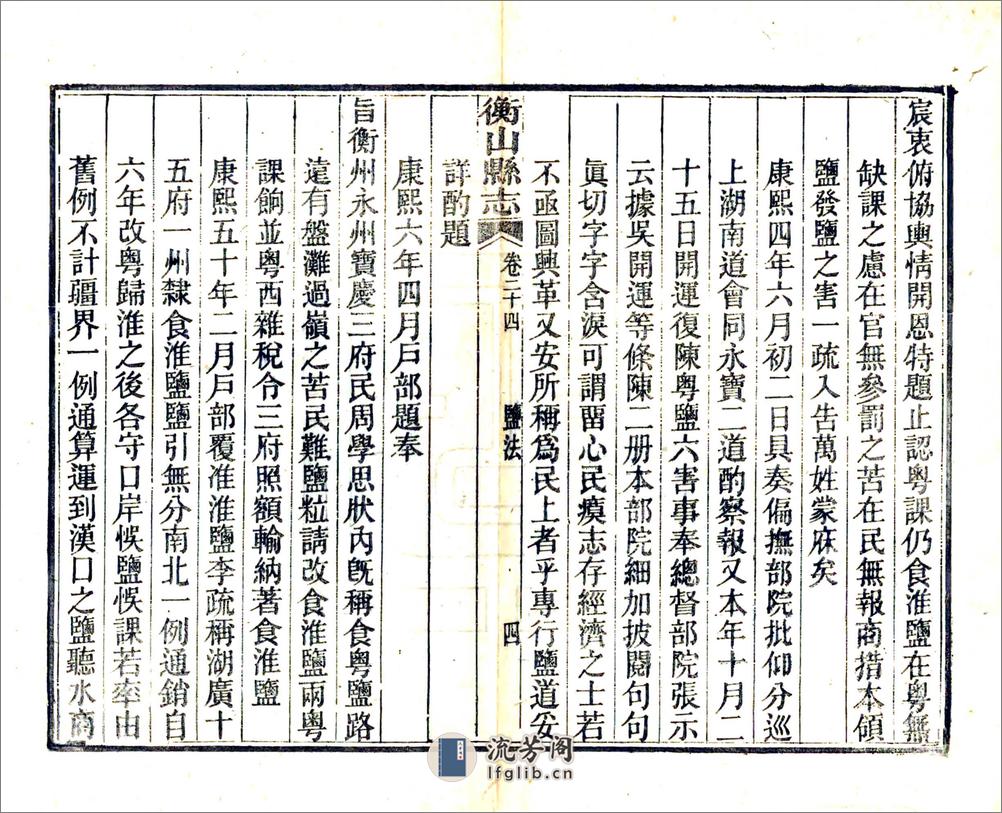 宸衷俯協輿情開恩特題止認粤課仍食淮鹽在粤無
缺課之慮在官無參罰之苦在民無報商措本領
鹽發鹽之害一疏入告萬姓蒙庥矣
康熙四年六月初二日具奏偏撫部院批仰分巡
上湖南道會同永寶二道酌察報又本年十月二
十五日開運復陳粤鹽六害事奉總督部院張示
云據吳開運等條陳二册本部院細加披閱句句
眞切字字含淚可謂留心民瘼志存經濟之士若
不亟圖興革又安所稱爲民上者乎專行鹽道妥
詳酌題
衡山縣志
卷二十四
鹽法
四
康熙六年四月戸部題奉
旨衡州永州寶慶三府民周學思狀內旣稱食粤鹽路
遠有盤灘過嶺之苦民難鹽粒請改食淮鹽兩粤
課餉並粤西雜稅令三府照額輸納著食淮鹽
康熙五十年二月戸部覆准淮鹽李疏稱湖廣十
五府一州隸食淮鹽鹽引無分南北一例通銷自
六年改粤歸淮之後各守口岸悞鹽悞課若率由
舊例不計疆界一例通算運到漢口之鹽聽水商
流芳阁
lfglib.cn